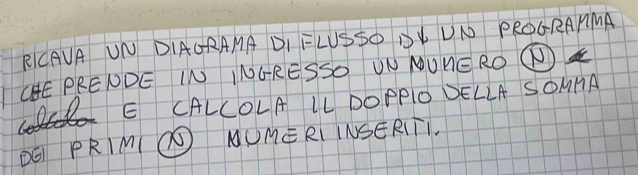 RICAVA UN DIAGRAMA DI FLUSSO DI UN PROGRAMMA
CHE PRENDE IN INGRESSO UN NUMERO N
E CALCOLA IL DOPPIO DELLA SOMMA
DEI PRIMI N NUMERI INSERITI.